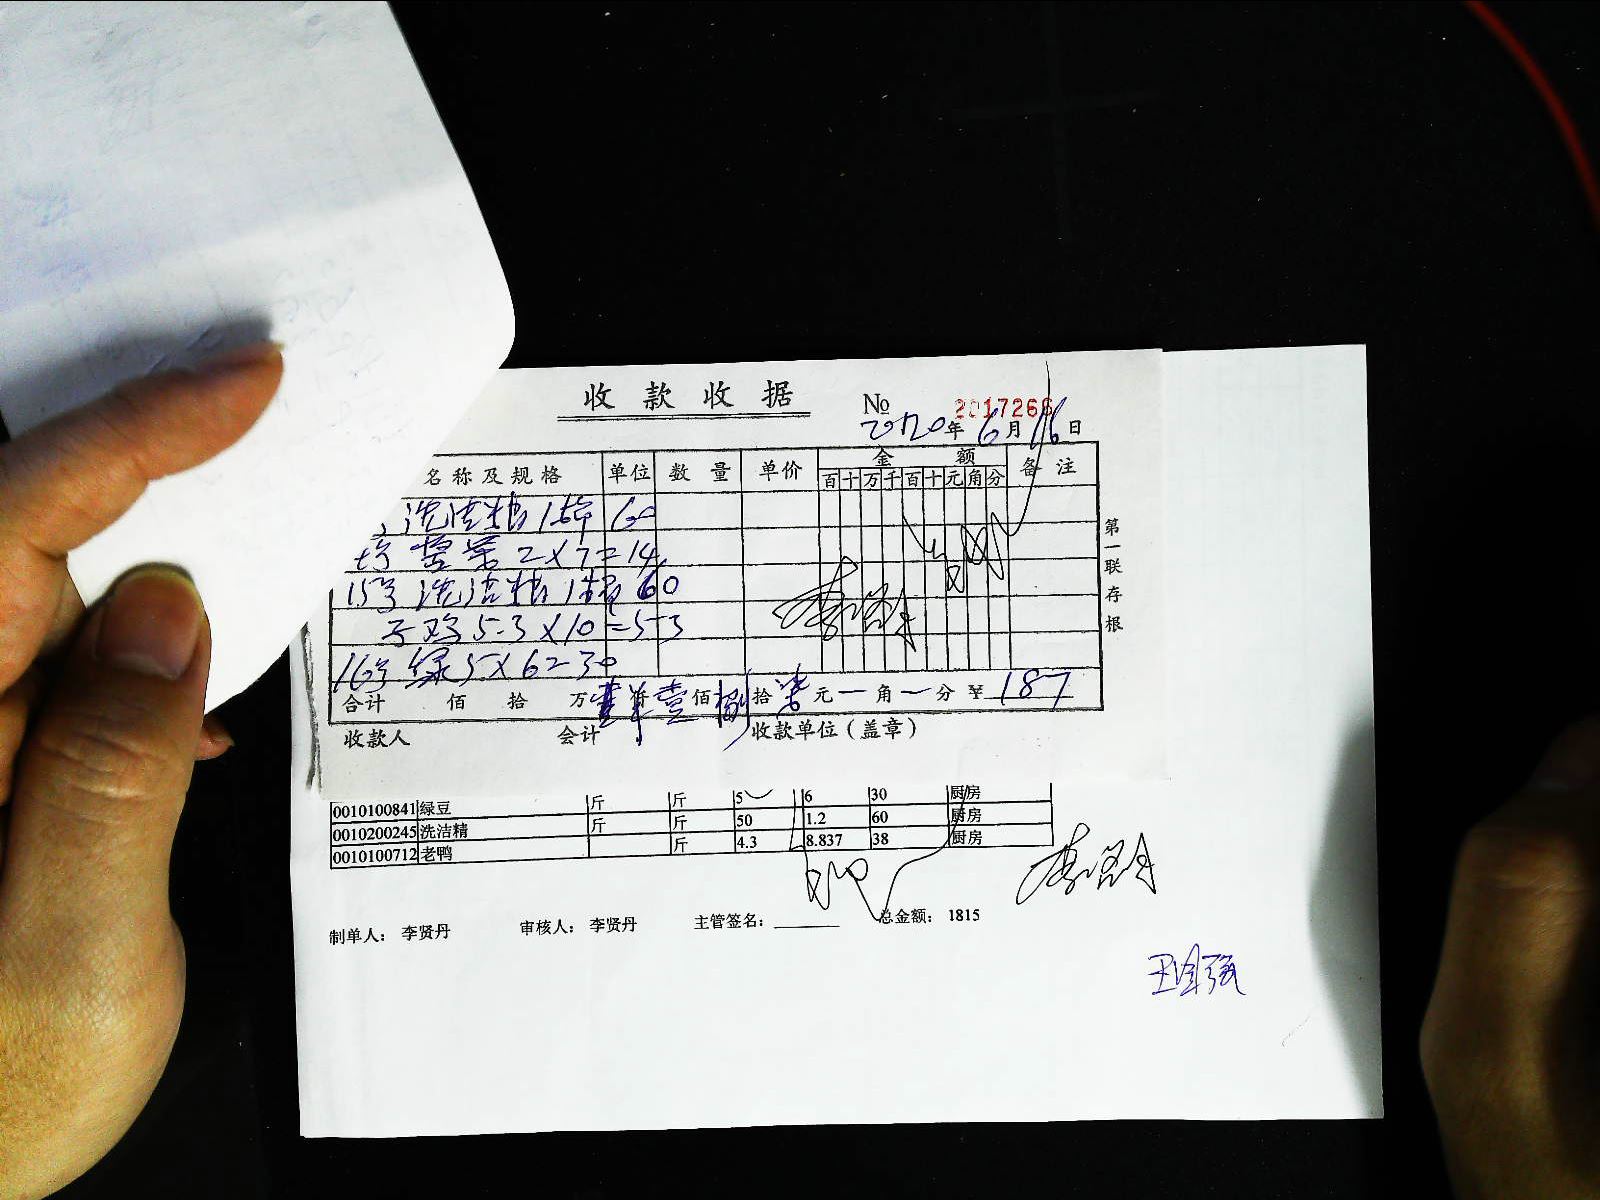 收款收据
No 2017266
2020年6月16日
名称及规格 单位 数量 单价 金额 备注
百十万千百十元角分
洗洁精1桶 60
2×7=14
15号 洗洁精1桶 60
子鸡5.3×10=53
16号 绿5×6=30
合计 佰 拾 万 仟壹佰捌拾柒元一角一分 ¥187
收款人 会计 收款单位(盖章)
第一联存根
0010100841 绿豆 斤 斤 5 6 30 厨房
0010200245 洗洁精 斤 斤 50 1.2 60 厨房
0010100712 老鸭 斤 4.3 8.837 38 厨房
制单人: 李贤丹 审核人: 李贤丹 主管签名: 总金额: 1815